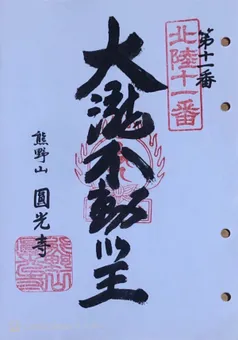 第十一番
北陸十一番
大瀧不動明王
熊野山
圓光寺